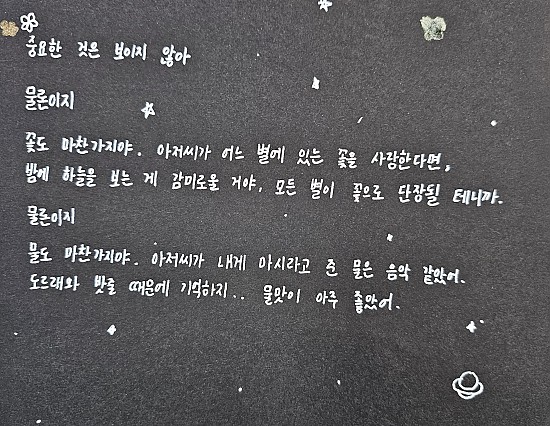 중요한 것은 보이지 않아
물론이지
꽃도 마찬가지야. 아저씨가 어느 별에 있는 꽃을 사랑한다면,
밤에 하늘을 보는 게 감미로울 거야, 모든 별이 꽃으로 단장될 테니까.
물론이지
물도 마찬가지야. 아저씨가 내게 마시라고 준 물은 음악 같았어.
도르래와 밧줄 때문에 기억하지.. 물맛이 아주 좋았어.